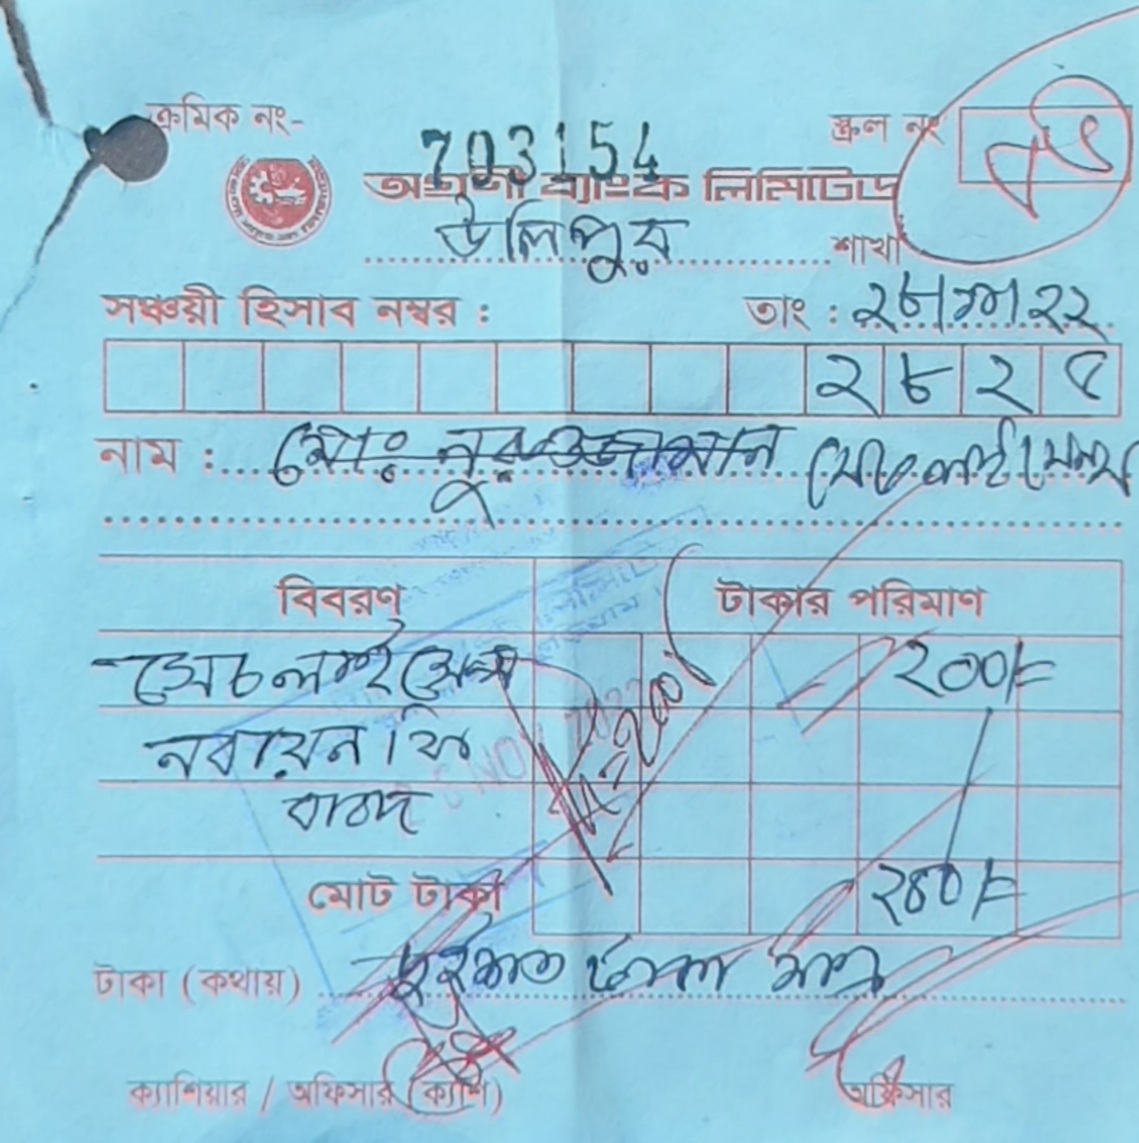 ক্রমিক নং-
703154
স্ক্রল নং
অগ্রণী ব্যাংক লিমিটেড
উলিপুর শাখা
সঞ্চয়ী হিসাব নম্বর : তাং : ২৮/১১/২২
২৮২৫
নাম : মোঃ নুরুজ্জামান
বিবরণ টাকার পরিমাণ
২০০/=
নবায়ন ফি
বাবদ
মোট টাকা ২০০/=
টাকা (কথায়) দুইশত টাকা মাত্র
ক্যাশিয়ার / অফিসার (ক্যাশ) অফিসার